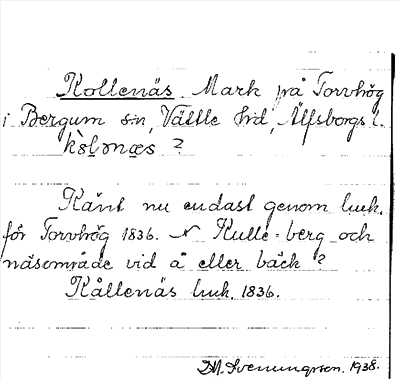 Kollenäs. Mark på Torvhög
i Bergum sn, Vättle hd, Älfsborgs l.
kòl̥ənæs ?
Känt nu endast genom luuk.
för Torvhög 1836. Kulle = berg och
näsområde vid å eller bäck?
Kållenäs luuk. 1836.
M. Svenungsson. 1938.